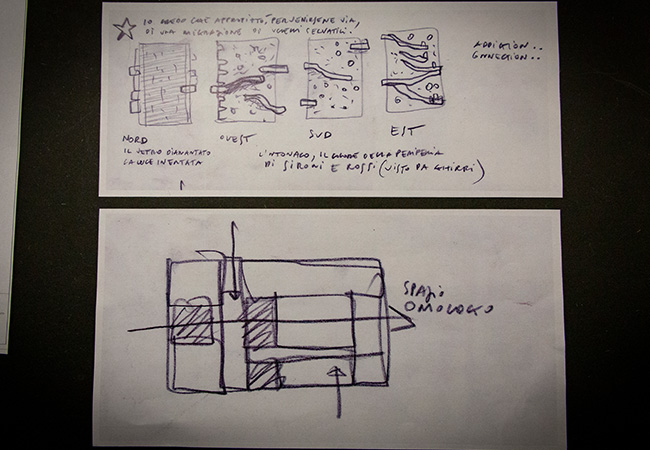 IO VEDO CASE APPUNTITO, PER VENIRSENE VIA,
DI UNA MIGRAZIONE DI UCCELLI SELVATICI.
ADDICTION..
CONNECTION..
NORD
OVEST
SUD
EST
IL VETRO DIAMANTATO
LA LUCE INVENTATA
L'INTONACO, IL COLORE DELLA PERIFERIA
DI SIRONI E ROSSI (VISTO DA GHIRRI)
SPAZIO
OMOLOGO